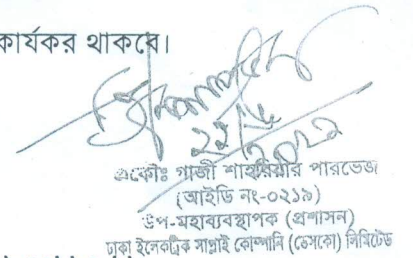 কার্যকর থাকবে।
২২
২০২২
প্রকৌঃ গাজী শাহরিয়ার পারভেজ
(আইডি নং-০২১৯)
উপ-মহাব্যবস্থাপক (প্রশাসন)
ঢাকা ইলেকট্রিক সাপ্লাই কোম্পানি (ডেসকো) লিমিটেড